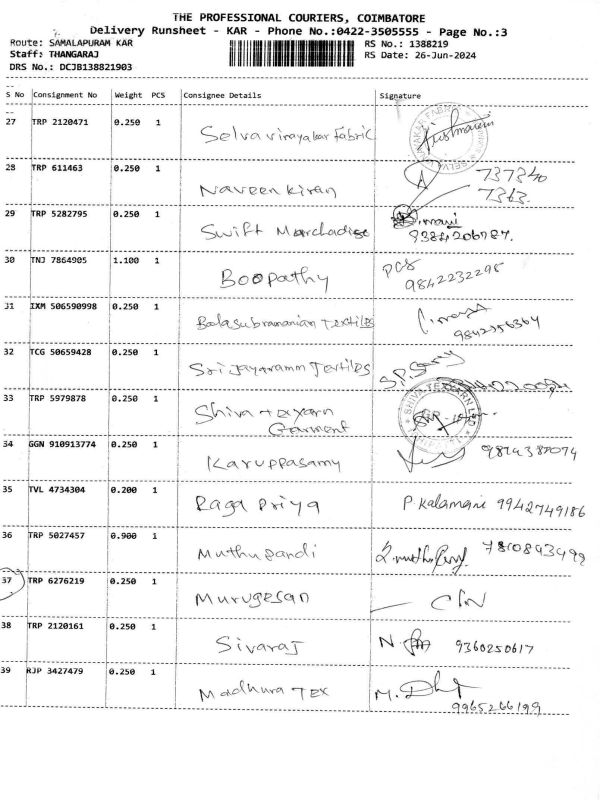 THE PROFESSIONAL COURIERS, COIMBATORE
Delivery Runsheet - KAR - Phone No.:0422-3505555 - Page No.:3
Route: SAMALAPURAM KAR RS No.: 1388219
Staff: THANGARAJ RS Date: 26-Jun-2024
DRS No.: DCJB138821903
S No Consignment No Weight PCS Consignee Details Signature
27 TRP 2120471 0.250 1 Selva vinayakar Fabric
28 TRP 611463 0.250 1 Naveen Kiran
29 TRP 5282795 0.250 1 Swift Marchadise
30 TNJ 7864905 1.100 1 Boopathy 9842232295
31 IXM 506590998 0.250 1 Balasubramanian Textiles
32 TCG 50659428 0.250 1 Sri Jayaramm Textiles
33 TRP 5979878 0.250 1 Shiva texyarn
Garment
34 GGN 910913774 0.250 1 Karuppasamy
35 TVL 4734304 0.200 1 Raga Priya P. Kalamani 9942749186
36 TRP 5027457 0.900 1 Muthu pandi
37 TRP 6276219 0.250 1 Murugesan
38 TRP 2120161 0.250 1 Sivaraj 9360250617
39 RJP 3427479 0.250 1 Madhura Tex 9965266199